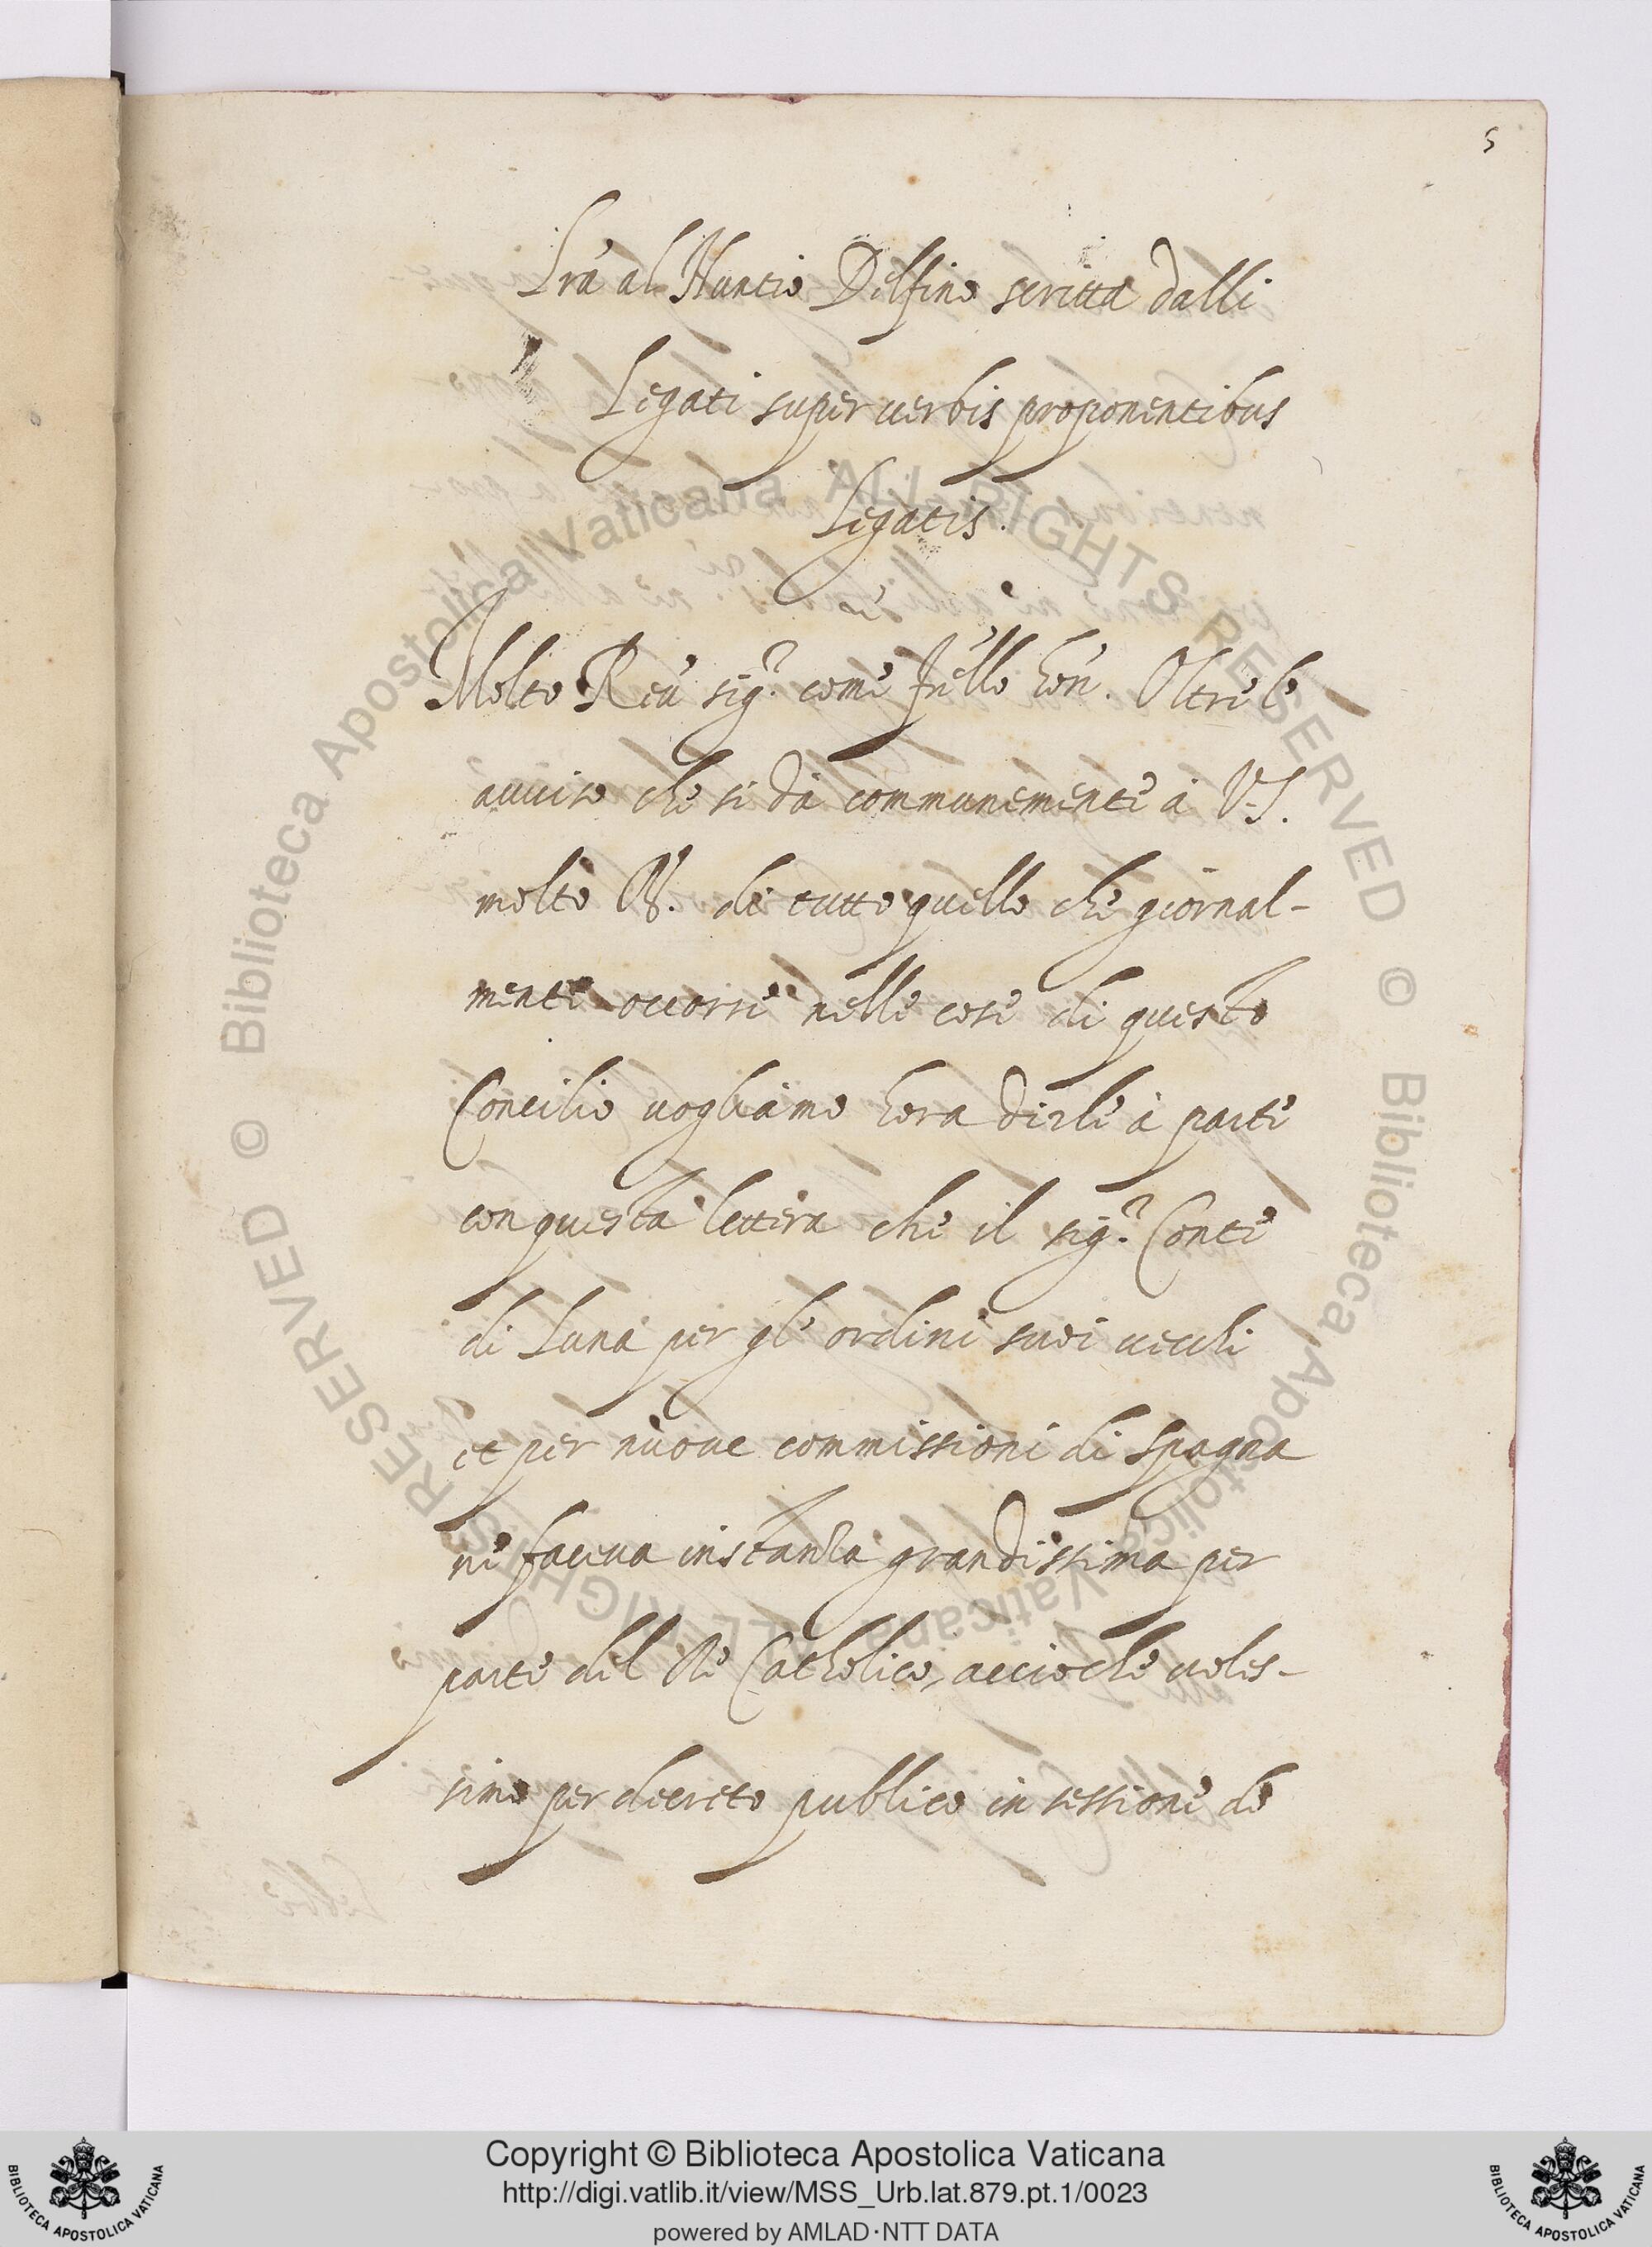 5
Lra al Nuntio Delfino scritta dalli
Legati super uerbis proponentibus
Legatis.
Molto Reu sig.r come fr̃ello hon. Oltre l'
auuiso che si dà communemente à V.S.
molto R. di tutto quello che giornal-
mente occorre nelle cose di questo
Concilio uogliamo hora dirle à parte
con questa lettera che il sig.r Conte
di Luna per gl' ordini suoi uecchi
et per nuoue commissioni di Spagna
ne faceua instanza grandissima per
parte del Rè Catholico, acciochè uoles-
simo per decreto publico in sessione de
© Biblioteca Apostolica Vaticana ALL RIGHTS RESERVED
© Biblioteca Apostolica Vaticana ALL RIGHTS RESERVED
BIBLIOTECA APOSTOLICA VATICANA
Copyright © Biblioteca Apostolica Vaticana
http://digi.vatlib.it/view/MSS_Urb.lat.879.pt.1/0023
powered by AMLAD·NTT DATA
BIBLIOTECA APOSTOLICA VATICANA